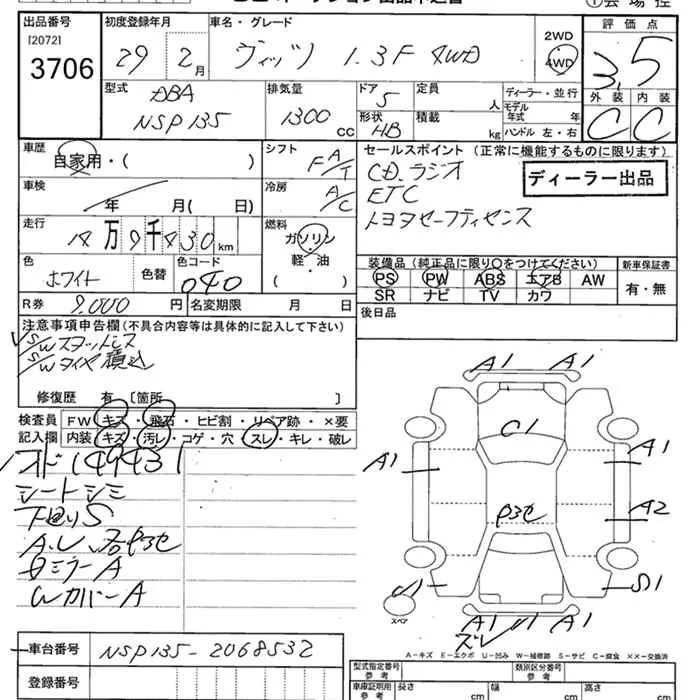 出品番号
[2072]
3706
初度登録年月
29年2月
車名・グレード
ヴィッツ 1.3F 4WD
2WD
4WD
評価点
3.5
外装 内装
C C
型式
DBA
NSP135
排気量
1300 cc
ドア
5
形状
HB
定員
人
積載
kg
ディーラー・並行
モデル年式 年
ハンドル 左・右
車歴
自家用・( )
シフト
F A/T
車検
年 月( 日)
冷房
A/C
走行
14万9千430km
燃料
ガソリン
軽・油
( )
色
ホワイト
色替
色コード
040
R券 9,000円
名変期限 月 日
セールスポイント (正常に機能するものに限ります)
CD.ラジオ
ETC
トヨタセーフティセンス
ディーラー出品
装備品 (純正品に限り○をつけてください)
PS PW ABS エアB AW
SR ナビ TV カワ
新車保証書
有・無
後日品
注意事項申告欄 (不具合内容等は具体的に記入して下さい)
S/Wスタッドレス
S/Wタイヤ積込
修復歴 有 [箇所 ]
検査員
記入欄
FW キズ・飛石・ヒビ割・リペア跡・×要
内装 キズ・汚レ・コゲ・穴・スレ・キレ・破レ
オド149431
シートシミ
下回りS
Wカバー A
A1 A1
C1
A1
A1
A2
S1
A1 U1 A1
ズレ
スペア
A-キズ E-エクボ U-凹み W-補修跡 S-サビ C-腐食 ××-交換済
車台番号
NSP135-2068532
登録番号
型式指定番号
参考
類別区分番号
参考
車庫証明用
参考
長さ cm
幅 cm
高さ cm